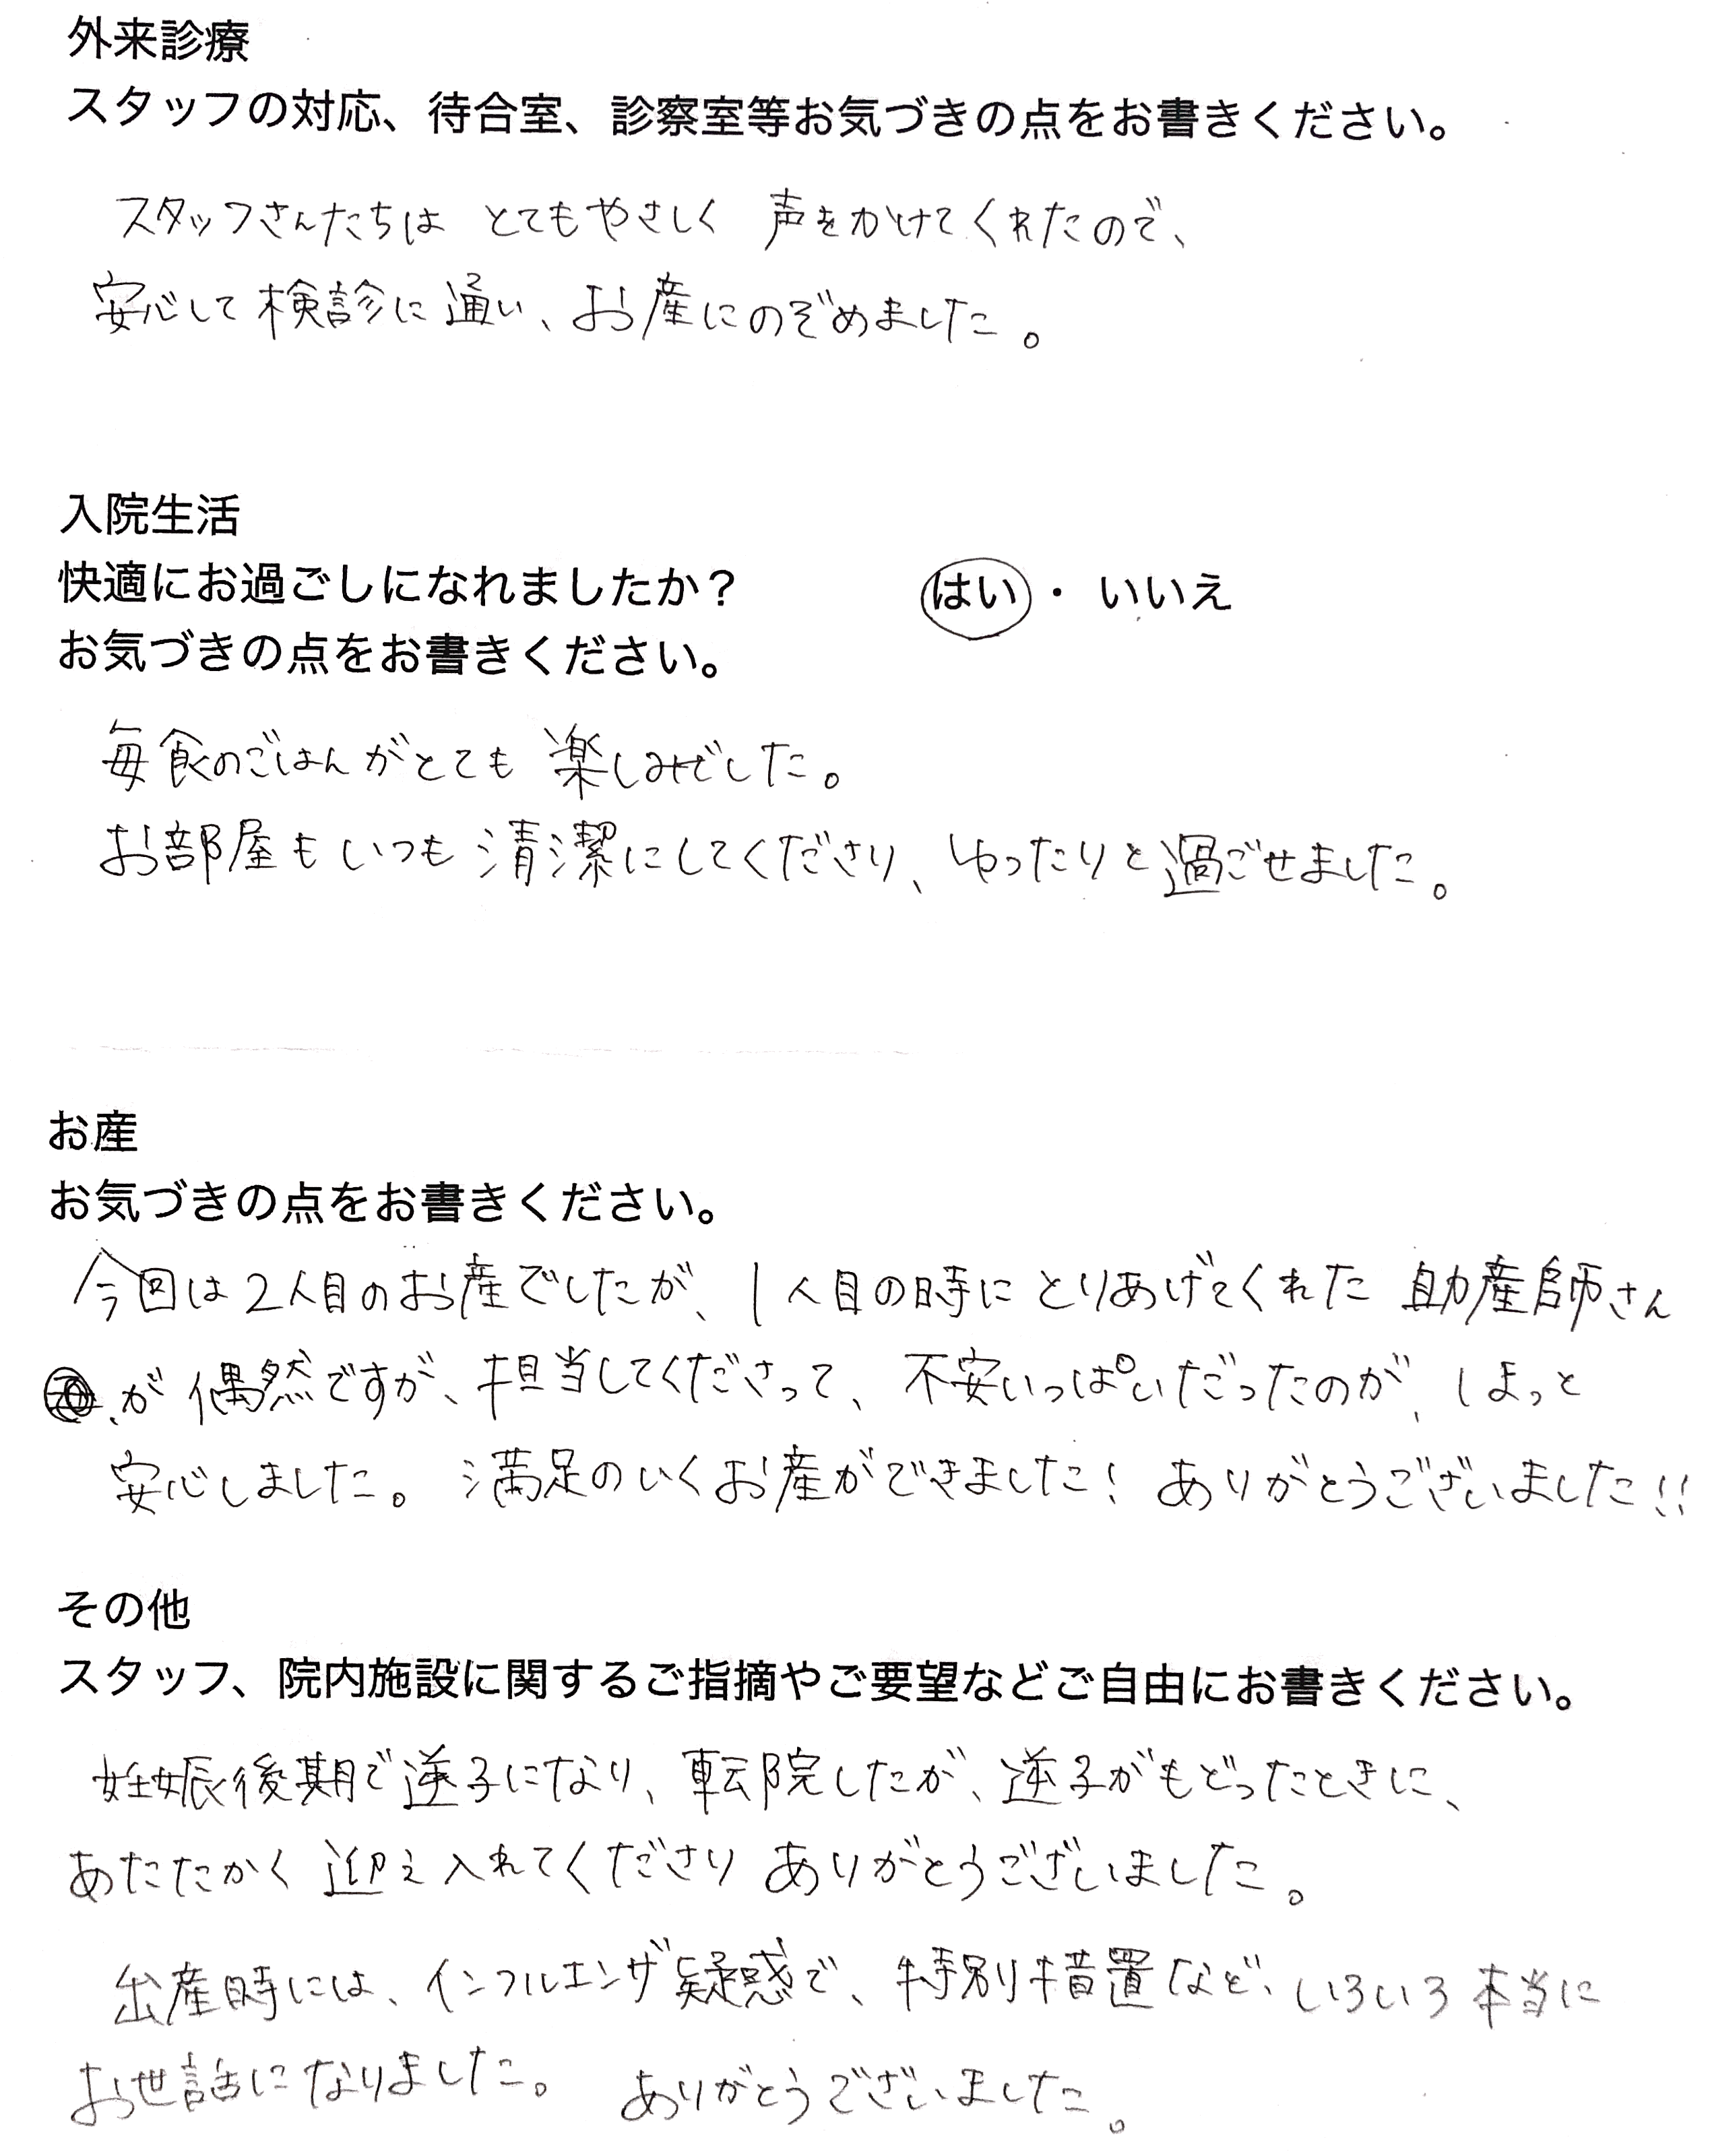 外来診療
スタッフの対応、待合室、診察室等お気づきの点をお書きください。
スタッフさんたちは とてもやさしく 声をかけてくれたので、
安心して検診に通い、お産にのぞめました。
入院生活
快適にお過ごしになれましたか？ はい ・ いいえ
お気づきの点をお書きください。
毎食のごはんがとても楽しみでした。
お部屋もいつも清潔にしてくださり、ゆったりと過ごせました。
お産
お気づきの点をお書きください。
今回は2人目のお産でしたが、1人目の時にとりあげてくれた助産師さん
が偶然ですが、担当してくださって、不安いっぱいだったのが、
安心しました。満足のいくお産ができました! ありがとうございました!!
その他
スタッフ、院内施設に関するご指摘やご要望などご自由にお書きください。
妊娠後期で逆子になり、転院したが、逆子がもどったときに、
あたたかく迎え入れてくださり ありがとうございました。
出産時には、インフルエンザ疑惑で、特別措置など、いろいろ本当に
お世話になりました。 ありがとうございました。